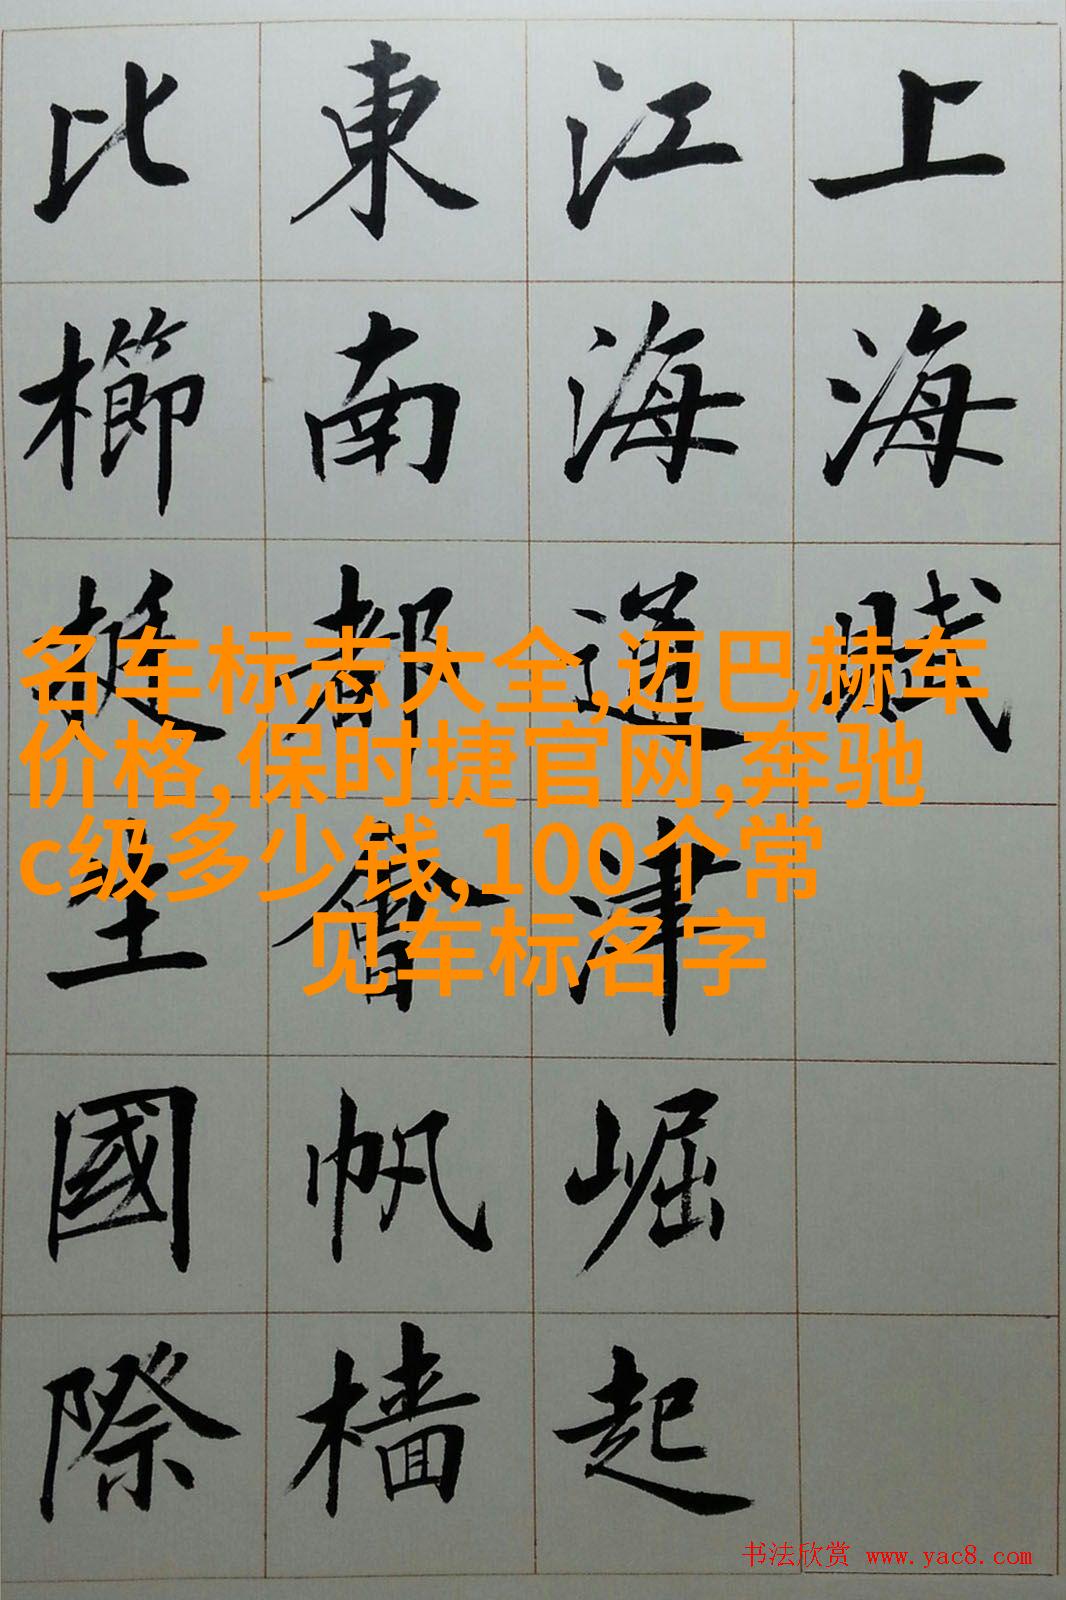 上海賦
江海通津崛起
東南都會帆檣
比櫛挺生國際
名车标志大全,迈巴赫车
价格,保时捷官网,奔驰
c级多少钱,100个常
见车标名字
书法欣赏 www.yac8.com